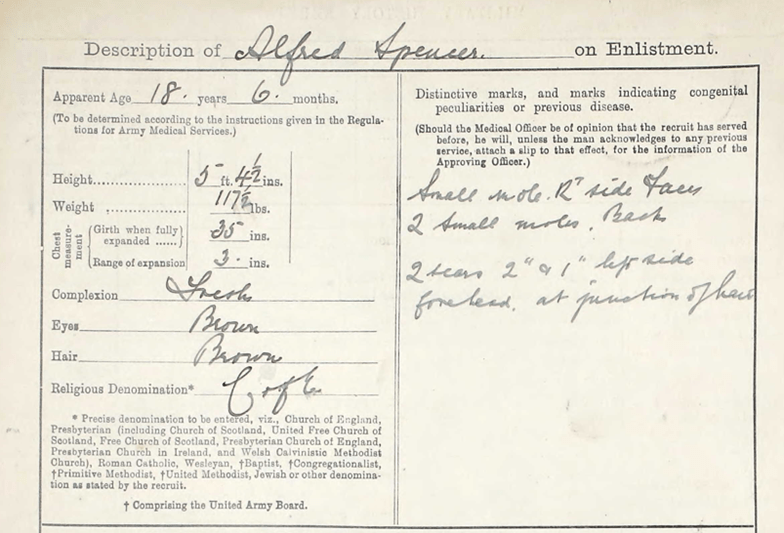 Description of Alfred Spencer. on Enlistment.
Apparent Age 18. years 6. months.
(To be determined according to the instructions given in the Regula-
tions for Army Medical Services.)
Height 5 ft. 4½ ins.
Weight 117½ lbs.
Chest measure-ment
Girth when fully expanded ...... 35 ins.
Range of expansion 3. ins.
Complexion Fresh
Eyes Brown
Hair Brown
Religious Denomination* C of E
* Precise denomination to be entered, viz., Church of England,
Presbyterian (including Church of Scotland, United Free Church of
Scotland, Free Church of Scotland, Presbyterian Church of England,
Presbyterian Church in Ireland, and Welsh Calvinistic Methodist
Church), Roman Catholic, Wesleyan, †Baptist, †Congregationalist,
†Primitive Methodist, †United Methodist, Jewish or other denomina-
tion as stated by the recruit.
† Comprising the United Army Board.
Distinctive marks, and marks indicating congenital
peculiarities or previous disease.
(Should the Medical Officer be of opinion that the recruit has served
before, he will, unless the man acknowledges to any previous
service, attach a slip to that effect, for the information of the
Approving Officer.)
Small mole. Rt side Face
2 Small moles. Back
2 scars 2" & 1" left side
forehead. at junction of hair